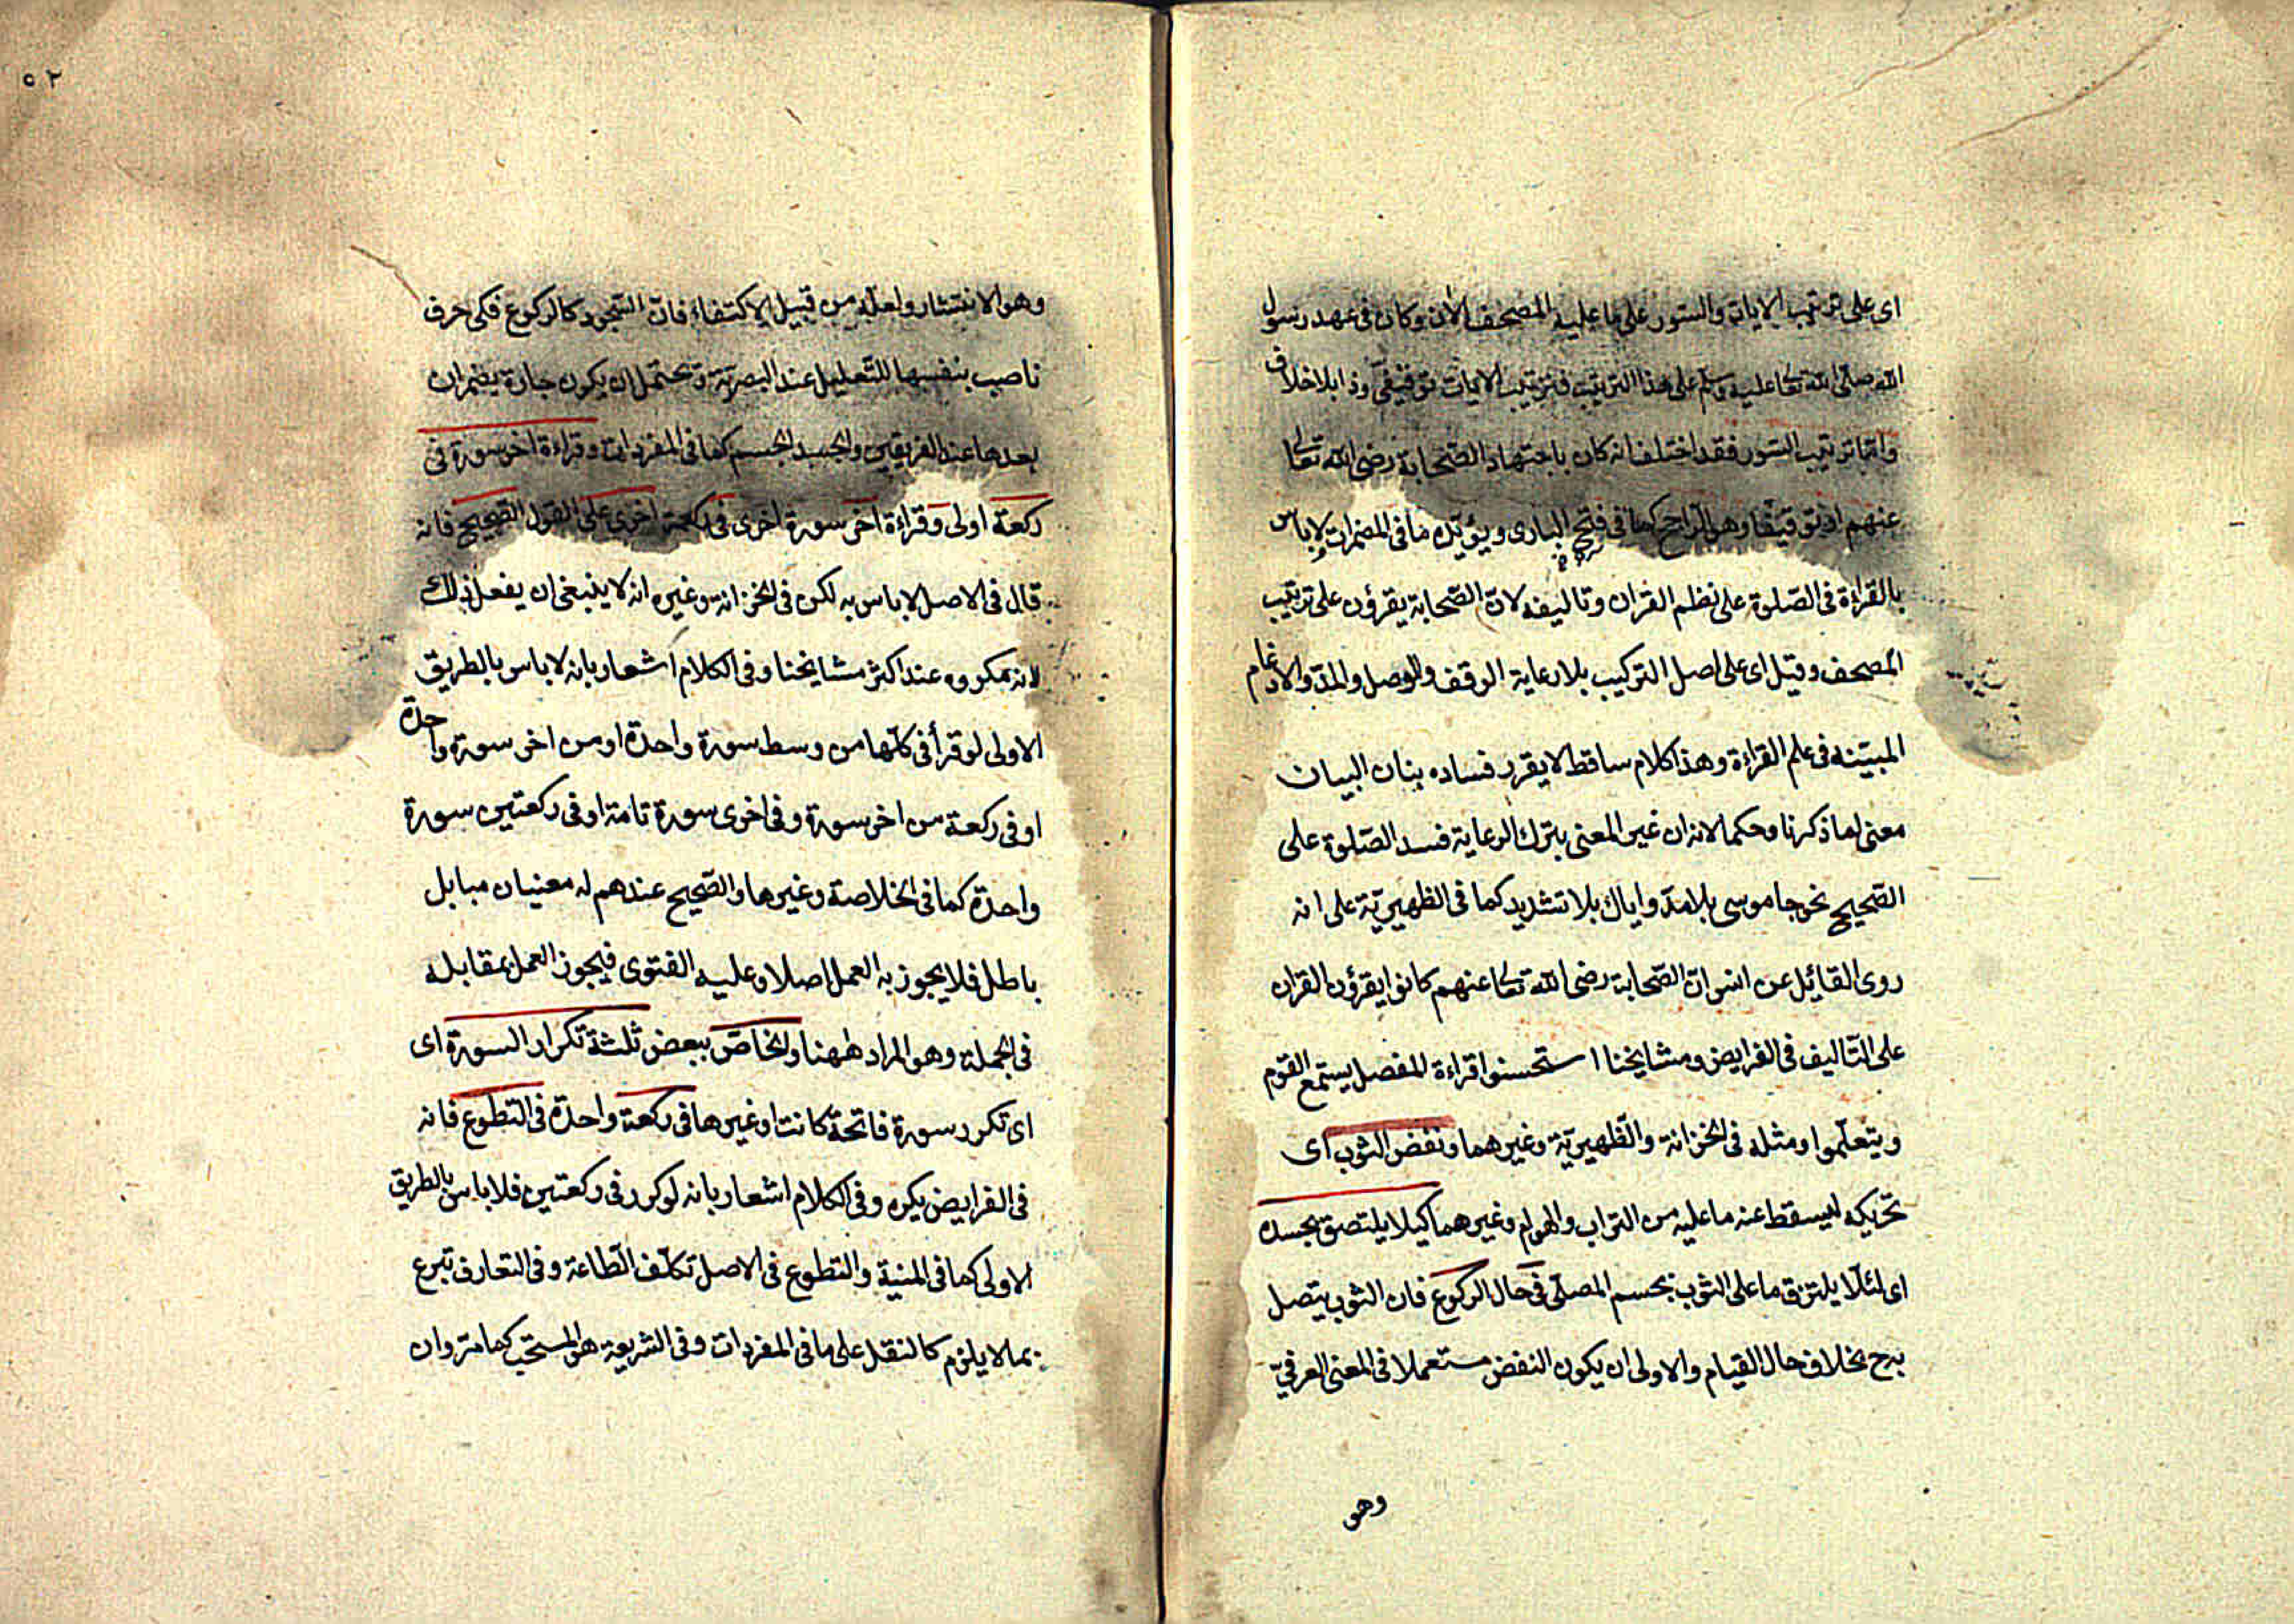 اى على ترتيب الايات والسّور على ما عليه المصحف الآن وكان فى عهد رسول
الله صلّى الله تعالى عليه وسلم على هذا الترتيب فترتيب الايات توقيفىّ وذا بلا خلاف
وامّا ترتيب السّور فقد اختلف انه كان باجتهاد الصّحابة رضى الله تعالى
عنهم او توقيفا وهو الرّاجح كما فى فتح البارى ويؤيّده ما فى المضمرات لا باس
بالقراءة فى الصّلوة على نظم القران وتاليفه لانّ الصّحابة يقرؤن على ترتيب
المصحف وقيل اى على اصل التركيب بلا رعاية الوقف والوصل والمدّ والادغام
المبيّنه فى علم القراءة وهذا كلام ساقط لا يقرر فساده بنان البيان
معنى لما ذكرنا وحكما لانه ان غير المعنى بترك الرعاية فسد الصّلوة على
الصّحيح نحو جا موسى بلا مدّ واياك بلا تشديد كما فى الظهيريّة على انه
روى القائل عن انس انّ الصّحابة رضى الله تعالى عنهم كانوا يقرؤن القران
على التّاليف فى الفرايض ومشايخنا استحسنوا قراءة المفصل يستمع القوم
ويتعلّموا ومثله فى الخزانة والظّهيريّة وغيرهما ونفض الثوب اى
تحريكه ليسقط عنه ما عليه من التراب والهوام وغيرهما كيلا يلتصق بجسده
اى لئلّا يلتزق ما على الثوب بجسم المصلّى فى حال الركوع فان الثوب يتصل
به ح بخلاف حال القيام والاولى ان يكون النفض مستعملا فى المعنى العرفىّ
وهو
٥٢
وهو الانتشار ولعلّه من قبيل الاكتفاء فانّ السّجود كالركوع فكى حرف
ناصب بنفسها للتّعليل عند البصريّة ويحتمل ان يكون جارة بضم ان
بعدها عند الفريقين والجسد الجسم كما فى المفردات وقراءة اخر سورة فى
ركعة اولى وقراءة اخر سورة اخرى فى ركعة اخرى على القول الصّحيح فانه
قال فى الاصل لا باس به لكن فى الخزانة وغيره انه لا ينبغى ان يفعل ذلك
لانه مكروه عند اكثر مشايخنا وفى الكلام اشعار بانه لا باس بالطريق
الاولى لو قرأ فى كلّها من وسط سورة واحدة او من اخر سورة واحدة
او فى ركعة من اخر سورة وفى اخرى سورة تامة او فى ركعتين سورة
واحدة كما فى الخلاصة وغيرها والصّحيح عندهم له معنيان مبابل
باطل فلا يجوز به العمل اصلا وعليه الفتوى فيجوز العمل بمقابله
فى الجملة وهو المراد ههنا والخاصّ ببعض ثلثة تكرار السورة اى
اى تكرر سورة فاتحة كانت او غيرها فى ركعة واحدة فى التطوع فانه
فى الفرايض يكره وفى الكلام اشعار بانه لو كرر فى ركعتين فلا باس بالطريق
الاولى كما فى المنية والتطوع فى الاصل تكلّف الطّاعة وفى التعارف تبرع
بما لا يلزم كالنقل على ما فى المفردات وفى الشريعة هو المستحب كما مر وان